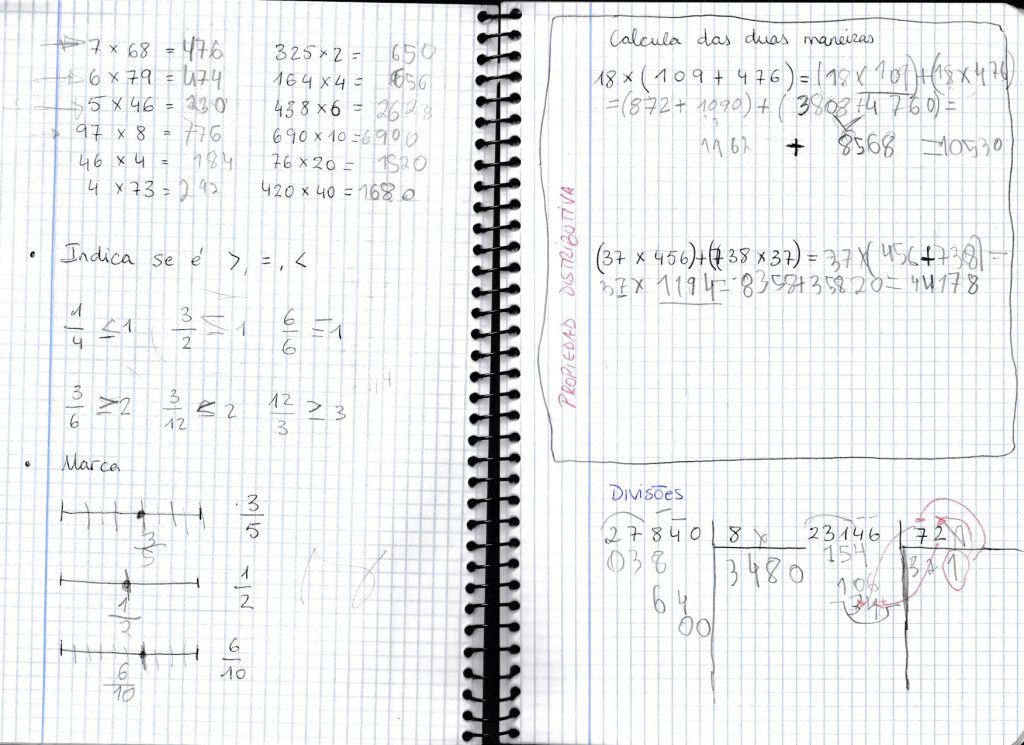 7 × 68 = 476
6 × 79 = 474
5 × 46 = 230
97 × 8 = 776
46 × 4 = 184
4 × 73 = 292
325 × 2 = 650
164 × 4 = 656
438 × 6 = 2628
690 × 10 = 6900
76 × 20 = 1520
420 × 40 = 1680
• Indica se é >, =, <
1/4 ≤ 1 3/2 ≤ 1 6/6 = 1
3/6 ≥ 2 3/12 ≤ 2 12/3 ≥ 3
• Marca
3/5 3/5
1/2 1/2
6/10 6/10
Calcula das duas maneizas
18 × (109 + 476) = (18 × 109) + (18 × 476)
= (872 + 1090) + (3808 + 4760) =
1962 + 8568 = 10530
(37 × 456) + (738 × 37) = 37 × (456 + 738) =
37 × 1194 = 8358 + 35820 = 44178
PROPIEDAD DISTRIBUTIVA
Divisões
27840 8
038 3480
64
00
23146 72
154
106
34